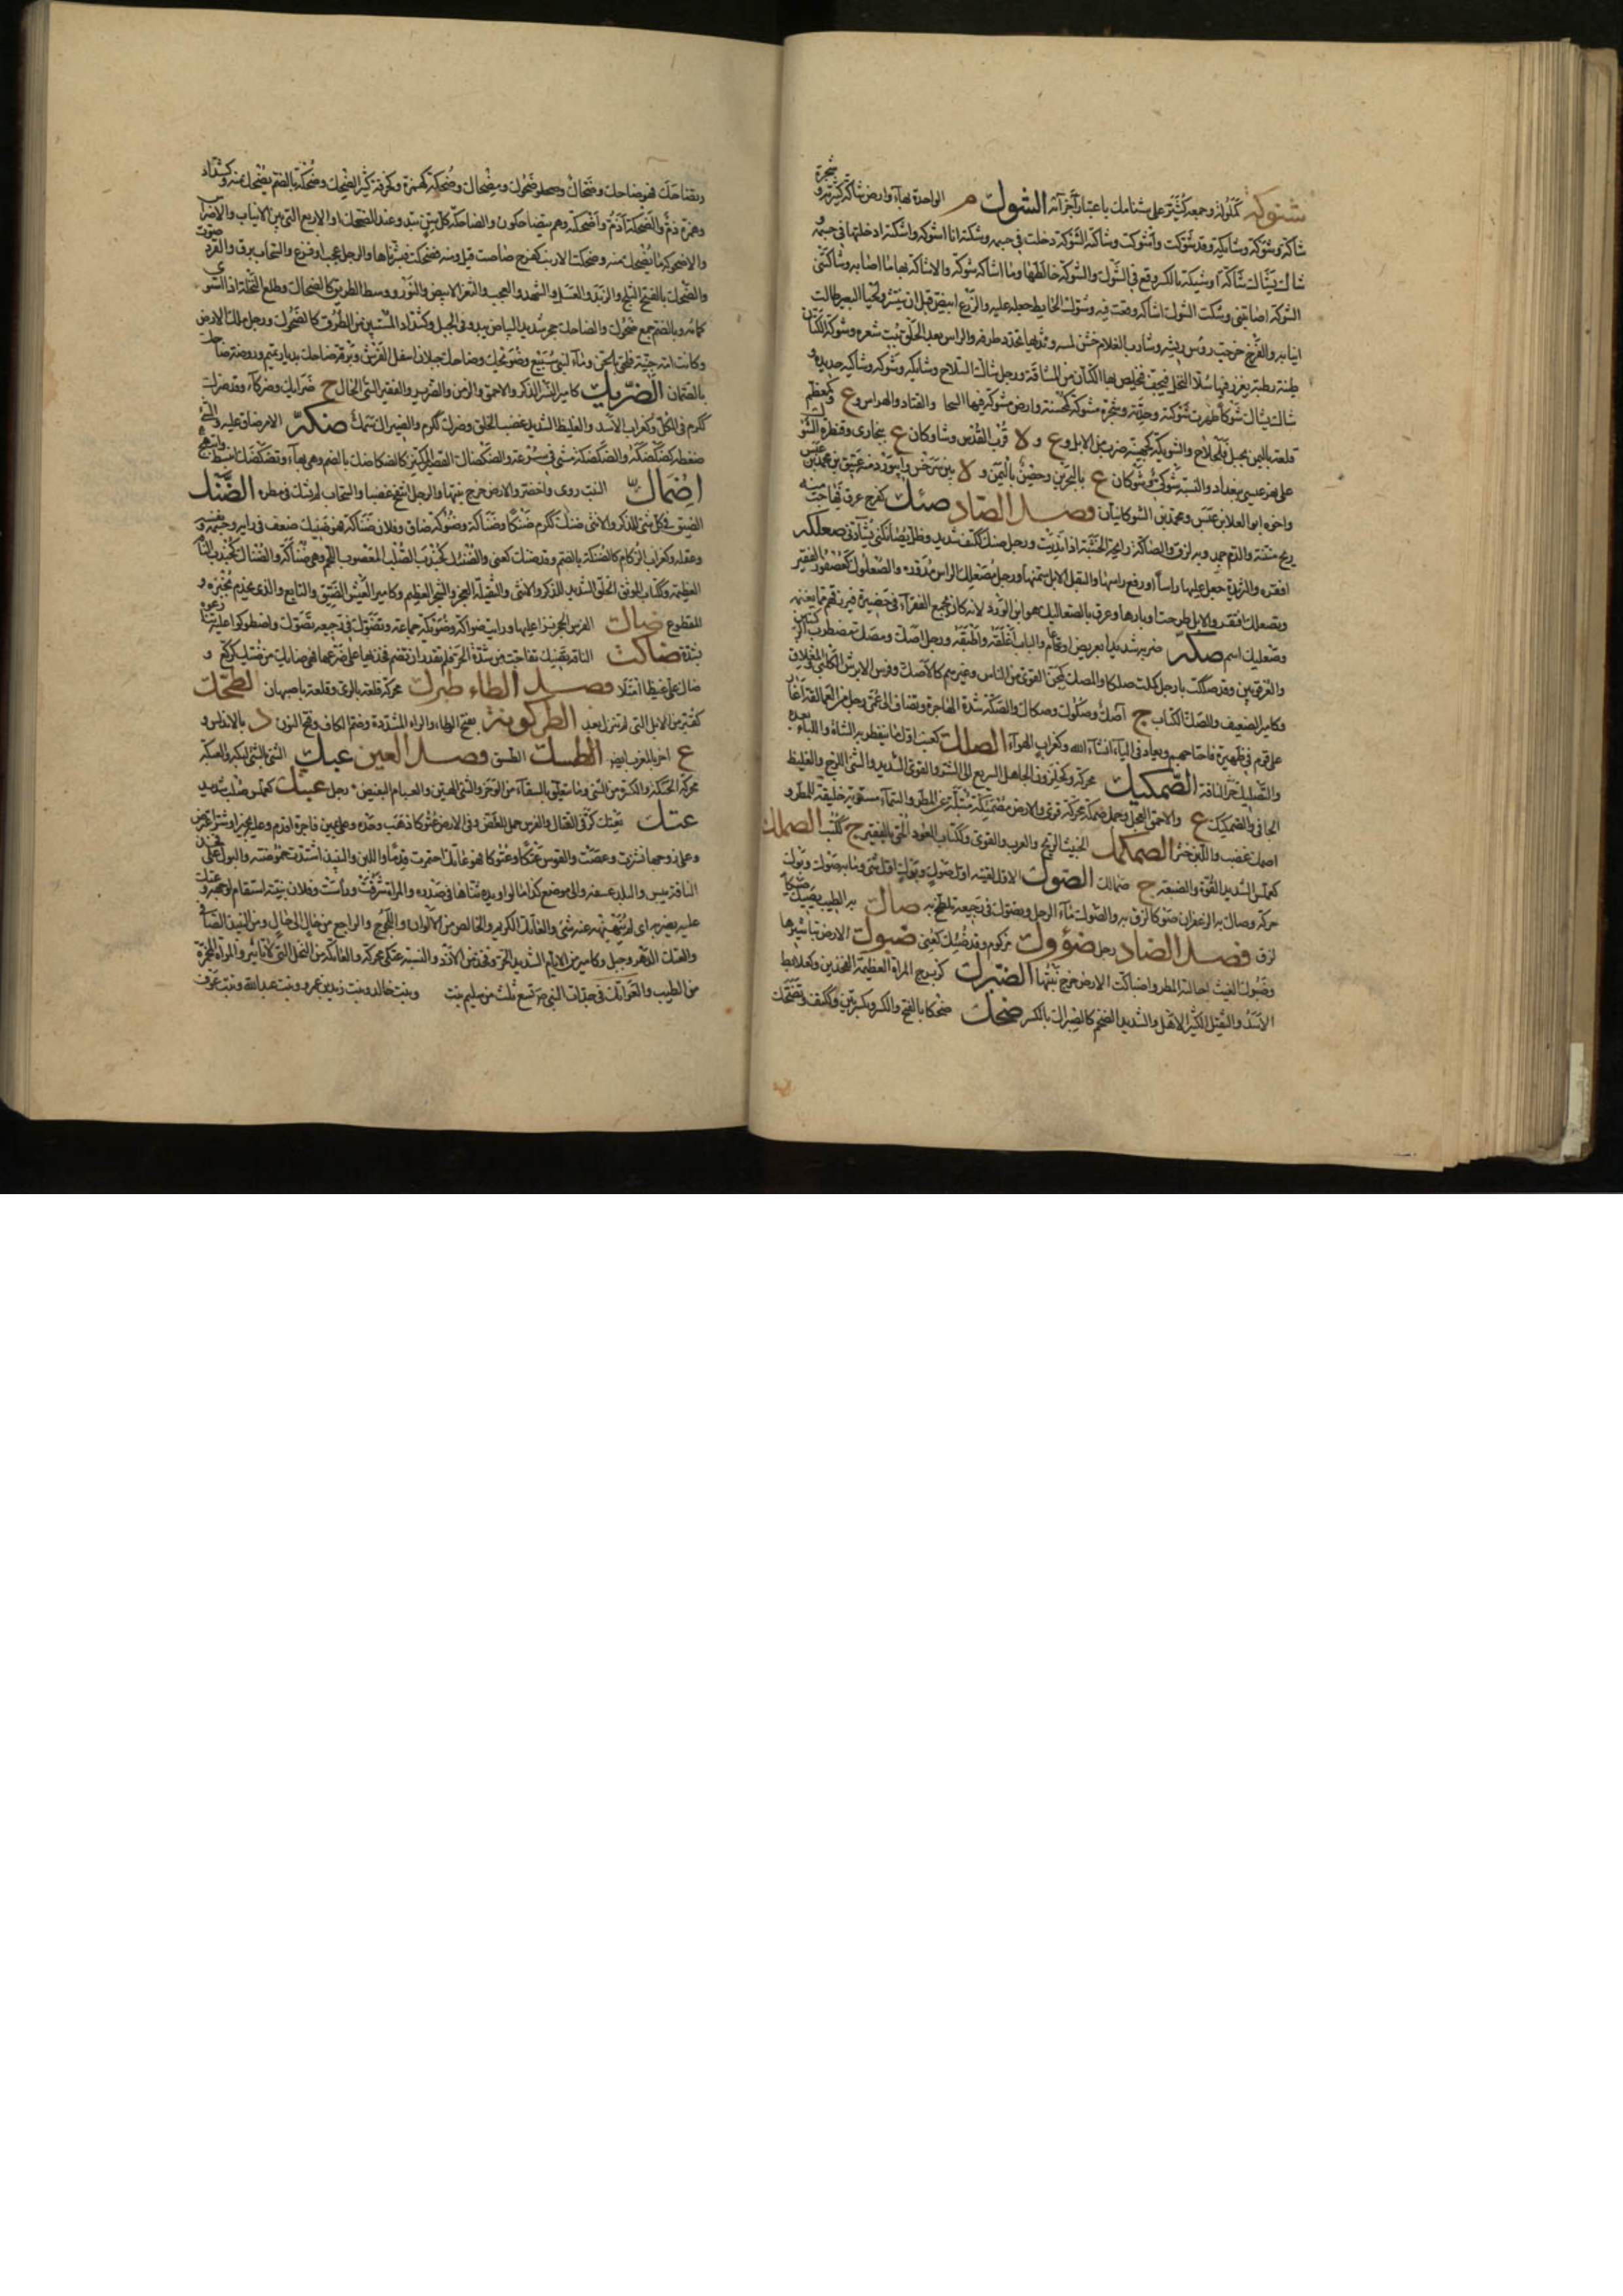 شنوكة كملولة وجمعه كثير على شنائك باعتبار اجزائه الشوك م الواحدة بهاء وارض شاكة كثيرته وشجرة
شاكة وشوكة وشائكة وقد شوكت واشوكت وشاكته الشوكة دخلت في جسمه وشكته انا اشوكه واشكته ادخلتها في جسمه و
شاك يشاك شاكة وشيكة بالكسر وقع في الشوك والشوكة خالطها وما اشاكه شوكة ولا شاكه بها ما اصابه وشاكتني
الشوكة اصابتني وشكت الشوك اشاكه وقعت فيه وشوك الحائط جعله عليه والزرع ابيض قبل ان ينتشر ولحيا البعير طالت
انيابه والفرخ خرجت رؤس ريشه وشارب الغلام خشن لمسه وثديها تحدد طرفه والراس بعد الحلق نبت شعره وشوكة الكتان
طينة رطبة يغرز فيها سلاء النخل فيجف فيخلص بها الكتان من المشاقة ورجل شاك السلاح وشائكه وشوكه وشاكيه حديده و
شاك يشاك شوكا ظهرت شوكته وحدته وشجرة مشوكة كمحسنة وارض مشوكة فيها السحا والقتاد والهراس وع وكمعظم
قلعة باليمن بجبل قلحاح والشويكة كجهينة ضرب من الابل وع و لا قرب القدس وشاوكان ع ببخارى وقنطرة الشوك
على نهر عيسى ببغداد والنسبة شوكي وشوكان ع بالبحرين وحصن باليمن و لا بين سرخس وابيورد منه عتيق بن محمد بن عنبس
واخوه ابو العلا عنبس ومحمد بن الشوكانيان فصل الصاد صئك كفرح عرق فهاجت منه
ريح منتنة والدم جمد وبه لزق والصاكة رايحة الخشبة اذا نديت ورجل صئك ككتف شديد وظل يصايكني يشادني صعلكه
افقره والثريدة جعل عليها راسا او رفع راسها والبقل الابل سمنها ورجل مصعلك الراس مدوره والصعلوك كعصفور الفقير
وتصعلك افتقر والابل طرحت اوبارها وعروة الصعاليك هو ابن الورد لانه كان يجمع الفقراء في حظيرة فيرزقهم مما يغنمه
وصعليك اسم صكه ضربه شديدا بعريض او عام والباب اغلقه واطبقه ورجل اصك ومصك مضطرب الركبتين
والعرقوبين وقد صككت يا رجل كملت صككا والمصك كمجن القوي من الناس وغيرهم كالاصك وفرس الابرش الكلبي والمغلاق
وكامير الضعيف والصك الكتاب ج اصك وصكوك وصكاك والصكة شدة الهاجرة وتضاف الى عمي رجل من العمالقة اغار
على قوم في ظهيرة فاجتاحهم ويعاد في الياء ان شاء الله وكغراب الهواء الصلك كعنب اول ما ينفطر به الشاة واللباء بعده
والتصليك صر الناقة الصمكيك محركة وكحلزون الجاهل السريع الى الشر والقوي الشديد والشيء اللزج والغليظ
الجافي والصمكيك ع والاحمق العجل وجمل صمكة محركة قوي والارض مصمئكة مبتلة عن المطر والسماء مستوية خليقة للمطر و
اصماك غضب واللبن خثر الصمكمك الخبيث الريح والعزب والقوي وككتاب العود الخ بالقتب ج ككتب الصمالك
كعملس الشديد القوة والبضعة ج صمالك الصوك الاول لقيته اول صوك وبوك اول شيء وما به صوك وبوك
حركة وصاك به الزعفران صوكا لزق به والصوك ماء الرجل وتصوك في رجيعه تلطخ به صاك به الطيب يصيك صيكا
لزق فصل الضاد رجل ضؤوك مزكوم وقد ضئك كعني ضبوك الارض تباشيرها
وضبوك الغيث احالته المطر واضباكت الارض خرج نبتها الضبرك كزبرج المراة العظيمة الفخذين وكعلابط
الاسد والثقيل الكثير الاهل والشديد الضخم كالضبراك بالكسر ضحك ضحكا بالفتح والكسر وبكسرتين وككتف وتضحك
وتضاحك فهو ضاحك وضحاك وضحوك ومضحاك وضحكة كهمزة وكحزقة كثير الضحك وضحكة بالضم يضحك منه وكشداد
وهمزة ذم والضحكة اذم واضحكته وهم يتضاحكون والضاحكة كل سن تبدو عند الضحك او الاربع التي بين الانياب والاضراس
والاضحوكة ما يضحك منه وضحكت الارنب كفرح حاضت قيل ومنه فضحكت فبشرناها والرجل عجب او فزع والسحاب برق والقرد صوت
والضحك بالفتح الثلج والزبد والعسل والشهد والعجب والثغر الابيض والنور ووسط الطريق كالضحاك وطلع النخلة اذا انشق
كمامه وبالضم جمع ضحوك والضاحك حجر شديد البياض يبدو في الجبل وكشداد المستبين من الطرق كالضحوك ورجل ملك الارض
وكانت امه جنية فلحق بالجن وماء لبني سبيع وضويحك وضاحك جبلان اسفل الفرش وبرقة ضاحك بديار تميم وروضة ضاحك
بالصمان الضريك كامير النسر الذكر والاحمق والزمن والضرير والفقير السيئ الحال ج ضرائك وضركاء وقد ضرك
ككرم في الكل وكغراب الاسد والغليظ الشديد عصب الخلق وضرك ككرم والضيراك سمك ضكه الامر ضاق عليه والشيء
ضغطه كضكضكه والضكضكة مشي في سرعة والضكضاك القصير المكتنز كالضكاضك بالضم وهي بهاء وتضكضك انبسط وابتهج
اضماك النبت روي واخضر والارض خرج نبتها والرجل انتفخ غضبا والسحاب لم يشك في مطره الضنك
الضيق في كل شيء للذكر والانثى ضنك ككرم ضنكا وضناكة وضنوكة ضاق وفلان ضناكة فهو ضنيك ضعف في رايه وجسمه ونفسه
وعقله وكغراب الزكام كالضنكة بالضم وقد ضنك كعني والضنئك كجندب الصلب المعصوب اللحم وهي ضنأكة والضناك كجندب الناقة
العظيمة وككتاب الموثق الخلق الشديد للذكر والانثى والثقيلة العجز والشجر العظيم وكامير العيش الضيق والتابع والذي يخدم بخبزه و
المقطوع ضاك الفرس الحجر نزا عليها ورايت ضواكة وضويكة جماعة وتضوك في رجيعه تضوك واضطوكوا عليه تنازعوه
بشدة ضاكت الناقة تضيك تفاجت من شدة الحر فلم تقدر ان تضم فخذيها على ضرعها فهي ضائك من ضيك كركع و
ضاك علي غيظا امتلا فصل الطاء طبرك محركة قلعة بالري وقلعة باصبهان الطحك
كفتر من الابل التي لم تنزل بعد الطركونة بفتح الطاء والراء المشددة وضم الكاف وفتح النون د بالاندلس و
ع اخر بالغرب ايضا الطسك الطسق فصل العين عبك الشيء بالشيء لبكه والعبكة
محركة الحبكة والكسرة من الشيء وما يتعلق بالسقاء من الوضر والشيء الهين والعبام البغيض رجل عبنك كعملس صلب شديد
عتك يعتك كر في القتال والفرس حمل للعض وفي الارض عتوكا ذهب وحده وعلى يمين فاجرة اقدم وعليه بخير او شر اعترض
وعلى زوجها نشزت وعصت والقوس عتكا وعتوكا فهو عاتك احمرت قدما واللبن والنبيذ اشتدت حموضته والبول على فخذ
الناقة يبس والبلد عسفه والى موضع كذا مالوا ويده ثناها في صدره والمراة شرفت ورأست وفلان بنيته استقام لوجهه وعتك
عليه يضربه اي لم ينهنهه عنه شيء والعاتك الكريم والخالص من الالوان واللجوج والراجع من حال الى حال ومن النبيذ الصافي
والعتك الدهر وجبل وكامير من الايام الشديد الحر وفخذ من الازد والنسبة عتكي محركة والعاتكة من النخل التي لا تأتبر والمراة المحمرة
من الطيب والعواتك في جدات النبي صلعم تسع ثلث من سليم بنت وبنت خالد وبنت زيد بن عمرو وبنت عبد الله وبنت عوف